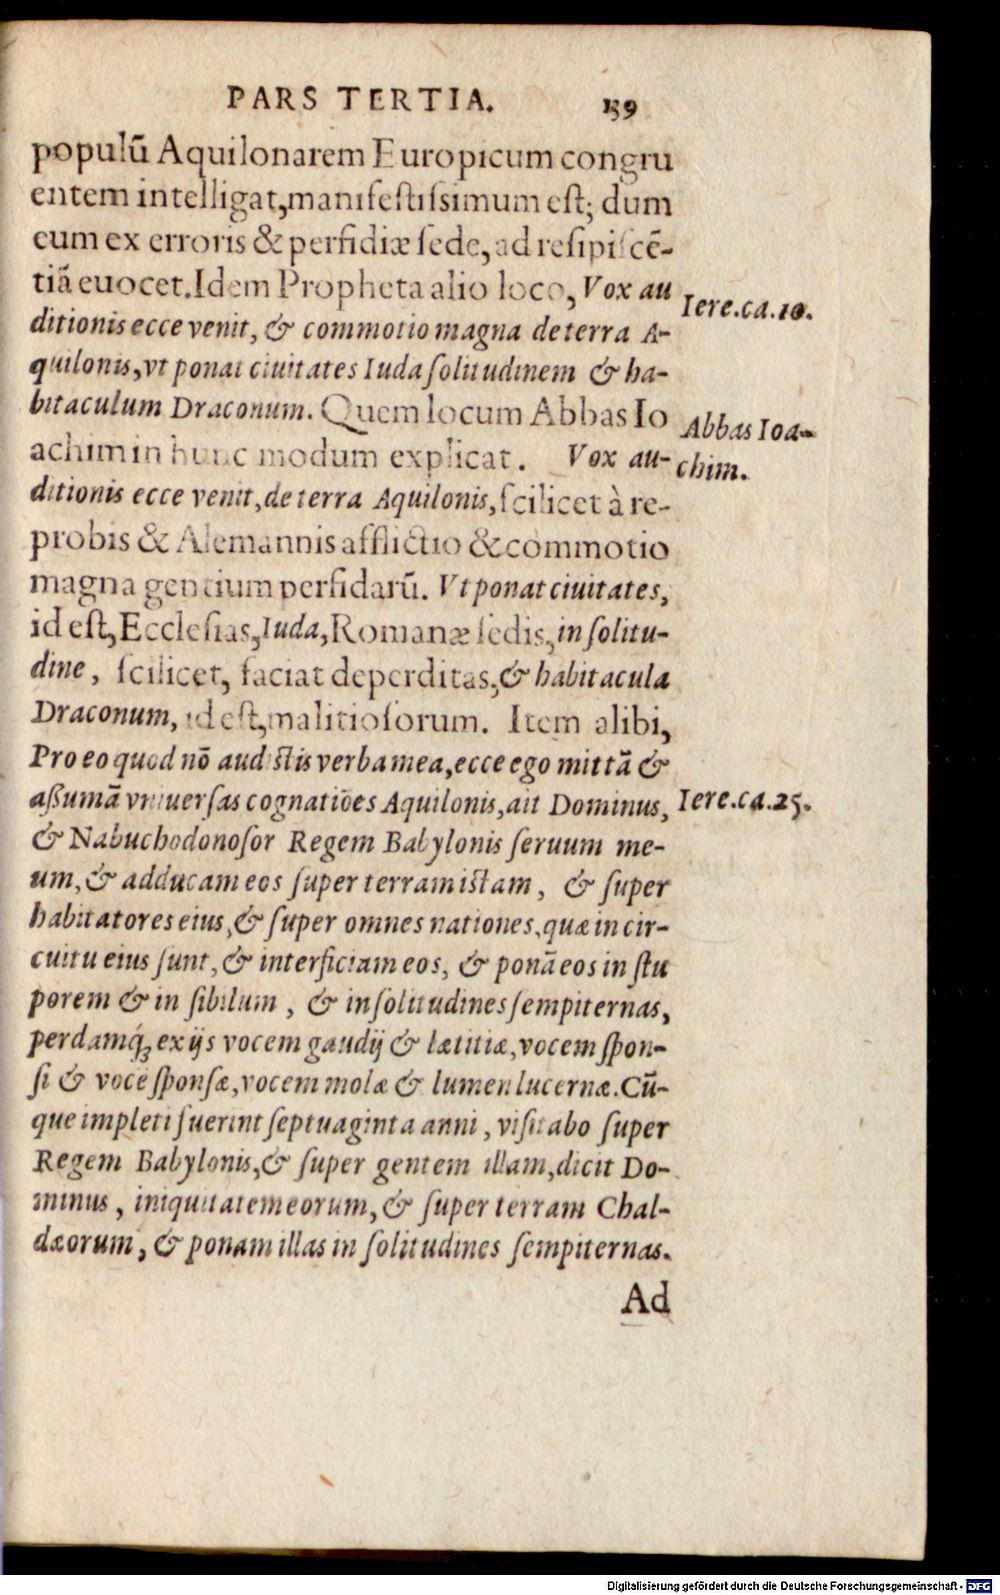 PARS TERTIA. 159
populū Aquilonarem Europicum congru
entem intelligat, manifestissimum est; dum
eum ex erroris & perfidiæ sede, ad resipiscē-
tiā euocet. Idem Propheta alio loco, Vox au
Iere.ca.10.
ditionis ecce venit, & commotio magna de terra A-
quilonis, vt ponat ciuitates Iuda solitudinem & ha-
bitaculum Draconum. Quem locum Abbas Io
Abbas Ioa-
achim in hunc modum explicat. Vox au-
chim.
ditionis ecce venit, de terra Aquilonis, scilicet à re-
probis & Alemannis afflictio & commotio
magna gentium perfidarū. Vt ponat ciuitates,
id est, Ecclesias, Iuda, Romanæ sedis, in solitu-
dine, scilicet, faciat deperditas, & habitacula
Draconum, id est, malitiosorum. Item alibi,
Pro eo quod nō audistis verba mea, ecce ego mittā &
assumā vniuersas cognatiōes Aquilonis, ait Dominus,
Iere.ca.25.
& Nabuchodonosor Regem Babylonis seruum me-
um, & adducam eos super terram istam, & super
habitatores eius, & super omnes nationes, quæ in cir-
cuitu eius sunt, & interficiam eos, & ponā eos in stu
porem & in sibilum, & in solitudines sempiternas,
perdamq́; ex ijs vocem gaudij & lætitiæ, vocem spon-
si & voce sponsæ, vocem molæ & lumen lucernæ. Cū-
que impleti fuerint septuaginta anni, visitabo super
Regem Babylonis, & super gentem illam, dicit Do-
minus, iniquitatem eorum, & super terram Chal-
dæorum, & ponam illas in solitudines sempiternas.
Ad
Digitalisierung gefördert durch die Deutsche Forschungsgemeinschaft - DFG